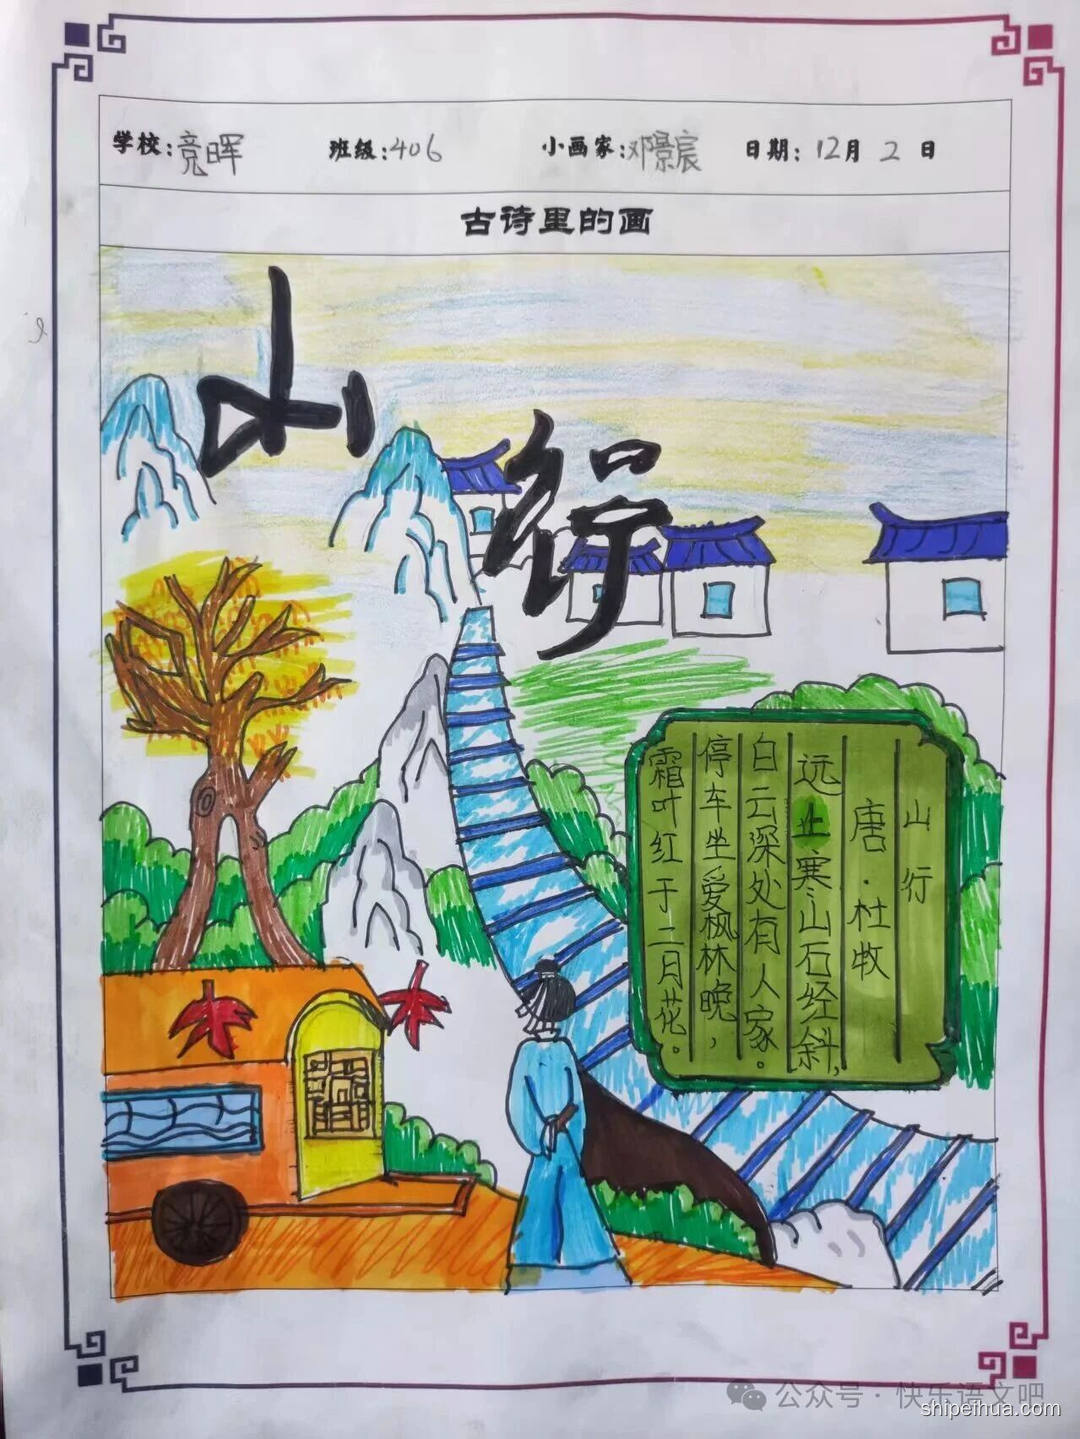 学校:竞晖 班级:406 小画家:邓景宸 日期:12月2日
古诗里的画
山行
山行
唐·杜牧
远上寒山石径斜,
白云深处有人家。
停车坐爱枫林晚,
霜叶红于二月花。
公众号·快乐语文吧
shipeihua.com